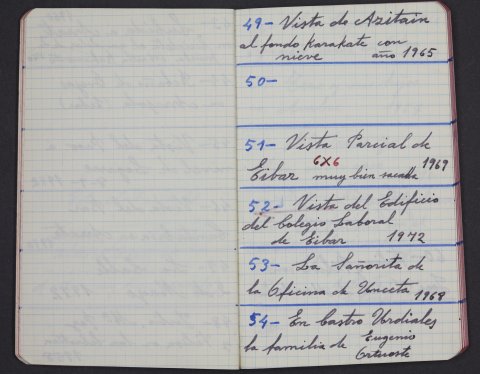 49- Vista de Azitain
al fondo Karakate con
nieve año 1965
50-
51- Vista Parcial de
Eibar 6x6 muy bien sacada 1969
52- Vista del Edificio
del Colegio Laboral
de Eibar 1972
53- La Señorita de
la Oficina de Unceta 1969
54- En Castro Urdiales
la familia de Eugenio